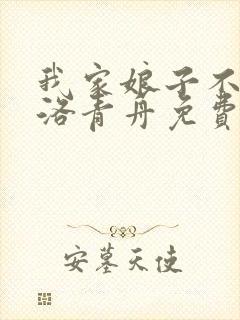 我家娘子不
洛青丹免费
安墓天使